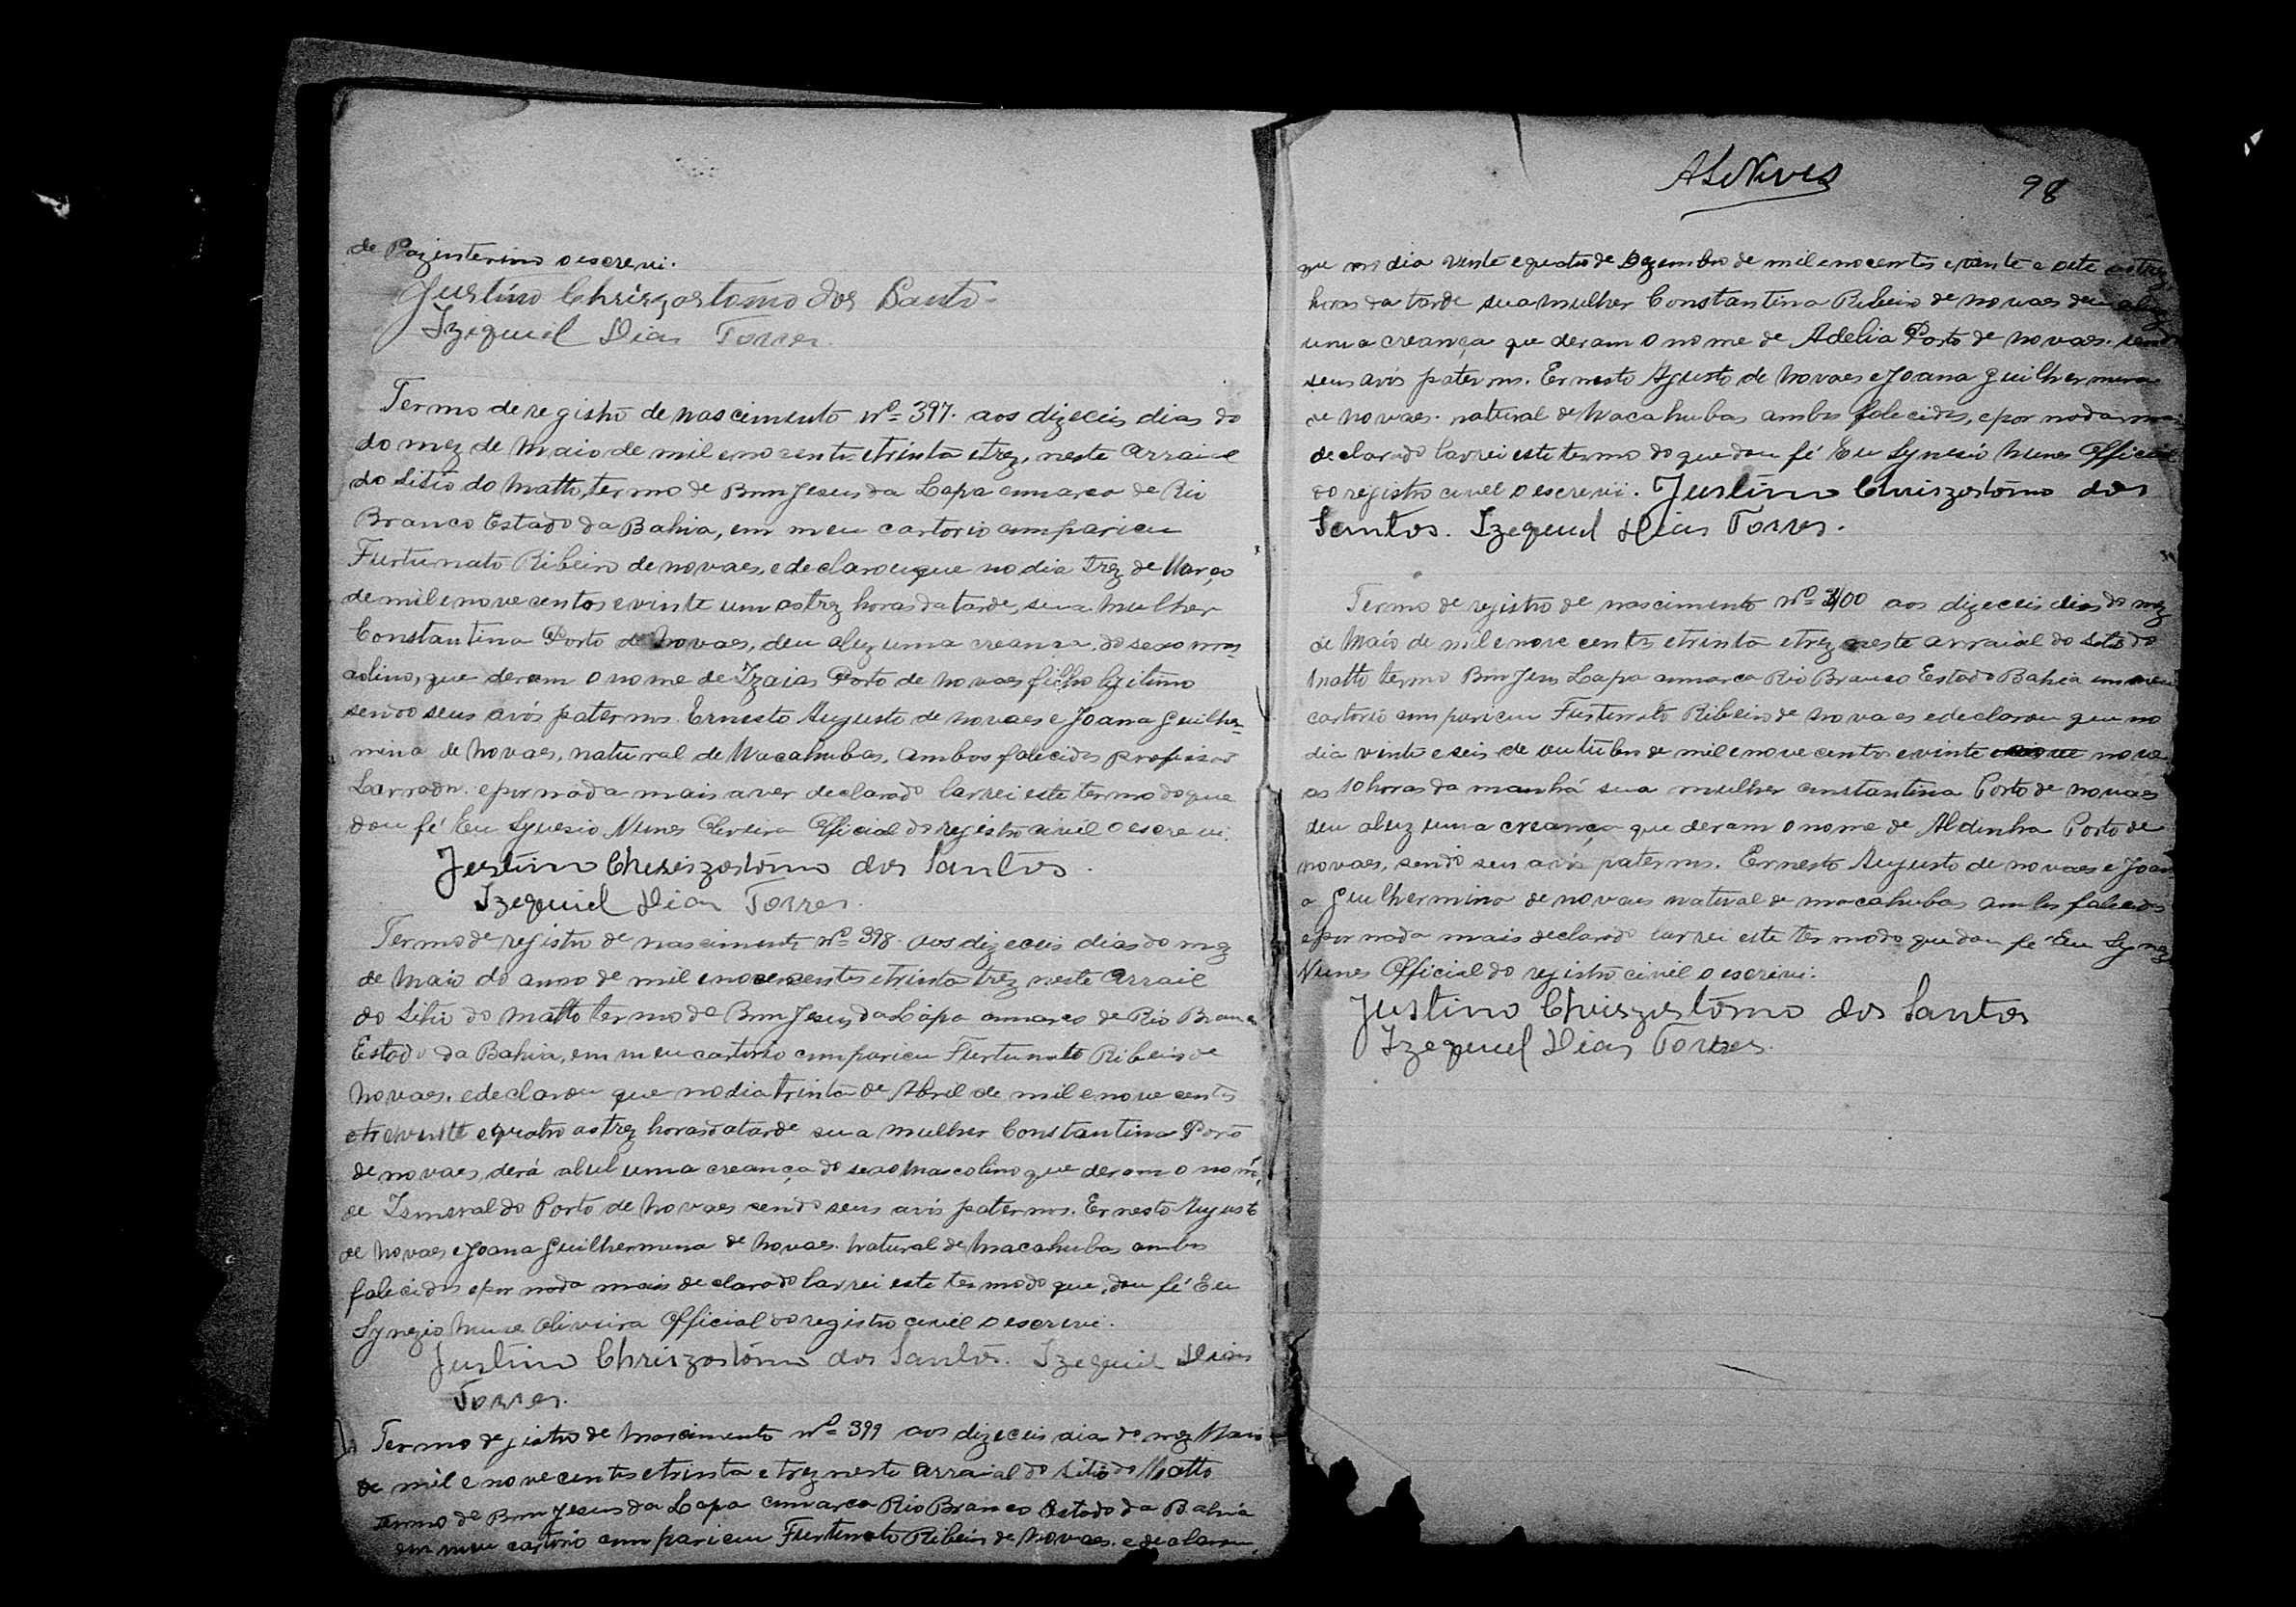 de Paz interino o escrevi.
Justino Chrizostomo dos Santos
Izequiel Dias Torres.
Termo de registro de nascimento Nº 397. aos dizeceis dias do
do mez de Maio de mil e novecentos e trinta e trez, neste arraial
do Sitio do Matto, termo de Bom Jesus da Lapa comarca de Rio
Branco Estado da Bahia, em meu cartorio compariceu
Furtunato Ribeiro de novaes, e declarou que no dia trez de Março
de mil e novecentos e vinte um as trez horas da tarde, sua mulher
Constantina Porto de Novaes, deu a luz uma creança, do sexo mas-
colino, que deram o nome de Izaias Porto de Novaes filho ligitimo
sendo seus avós paternos. Ernesto Augusto de Novaes e Joana Guilher-
mina de Novaes, natural de Macahubas, ambos falecidos profissão
Lavrador. e por nada mais aver declarado lavrei este termo do que
dou fé Eu Synesio Nunes Oliveira Official do registro civil o escrevi.
Justino Chrizostômo dos Santos.
Izequiel Dias Torres.
Termo de registro de nascimento Nº 398. Aos dizeceis dias do mez
de Maio do anno de mil e novecentos e trinta trez neste arraial
do Sitio do Matto termo de Bom Jesus da Lapa comarca de Rio Branco
Estado da Bahia, em meu cartorio compariceu Furtunato Ribeiro de
Novaes. e declarou que no dia trinta de Abril de mil e novecentos
e vinte e quatro as trez horas da tarde sua mulher Constantina Porto
de novaes, derá a lul uma creança do sexo Mascolino que deram o nome
de Ismeraldo Porto de Novaes sendo seus avós paternos. Ernesto Augusto
de Novaes e Joana Guilhermina de Novaes. Natural de Macahubas ambos
falecidos e por nada mais declarado lavrei este termo do que, dou fé Eu
Synezio Nunes Oliveira Official do registro civil o escrevi.
Justino Chrizostômo dos Santos. Izequiel Dias
Torres.
Termo de gistro de Nascimento Nº 399 aos dizeceis dia do mez Maio
de mil e novecentos e trinta e trez neste arraial do Sitio do Matto
termo de Bom Jesus da Lapa comarca Rio Branco Estado da Bahia
em meu cartorio compariceu Furtunato Ribeiro de Novaes. e declarou
98
que no dia vinte e quatro de Dezembro de mil e nocentos e vinte e sete as trez
horas da tarde sua mulher Constantina Ribeiro de Novaes deu a luz
uma creança que deram o nome de Adelia Porto de Novaes. sendo
seus avós paternos. Ernesto Agusto de Novaes e Joana Guilhermina
de Novaes. natural de Macahubas ambos falecidos, e por nada mais
declarado lavrei este termo do que dou fé Eu Synesio Nunes Official
do registro civel o escrevi. Justino Chrizostômo dos
Santos. Izequiel Dias Torres.
Termo de registro de nascimento Nº 400 aos dizeceis dias do mez
de Maio de mil e nove centos e trinta e trez neste arraial do Sitio do
Matto termo Bom Jesus Lapa comarca Rio Branco Estado Bahia em meu
cartorio compariceu Furtunato Ribeiro de Novaes e declarou que no
dia vinte e seis de outubro de mil e nove centos e vinte nove
as 10 horas da manhá sua mulher constantina Porto de novaes
deu a luz uma creança que deram o nome de Aldinha Porto de
novaes, sendo seu avós paternos. Ernesto Augusto de novaes e Joan
a Guilhermina de novaes natural de macahubas ambos falecidos
e por nada mais declarado lavrei este termo do que dou fé Eu Synezio
Nunes Official do registro civil o escrevi.
Justino Chrizostômo dos Santos
Izequiel Dias Torres.